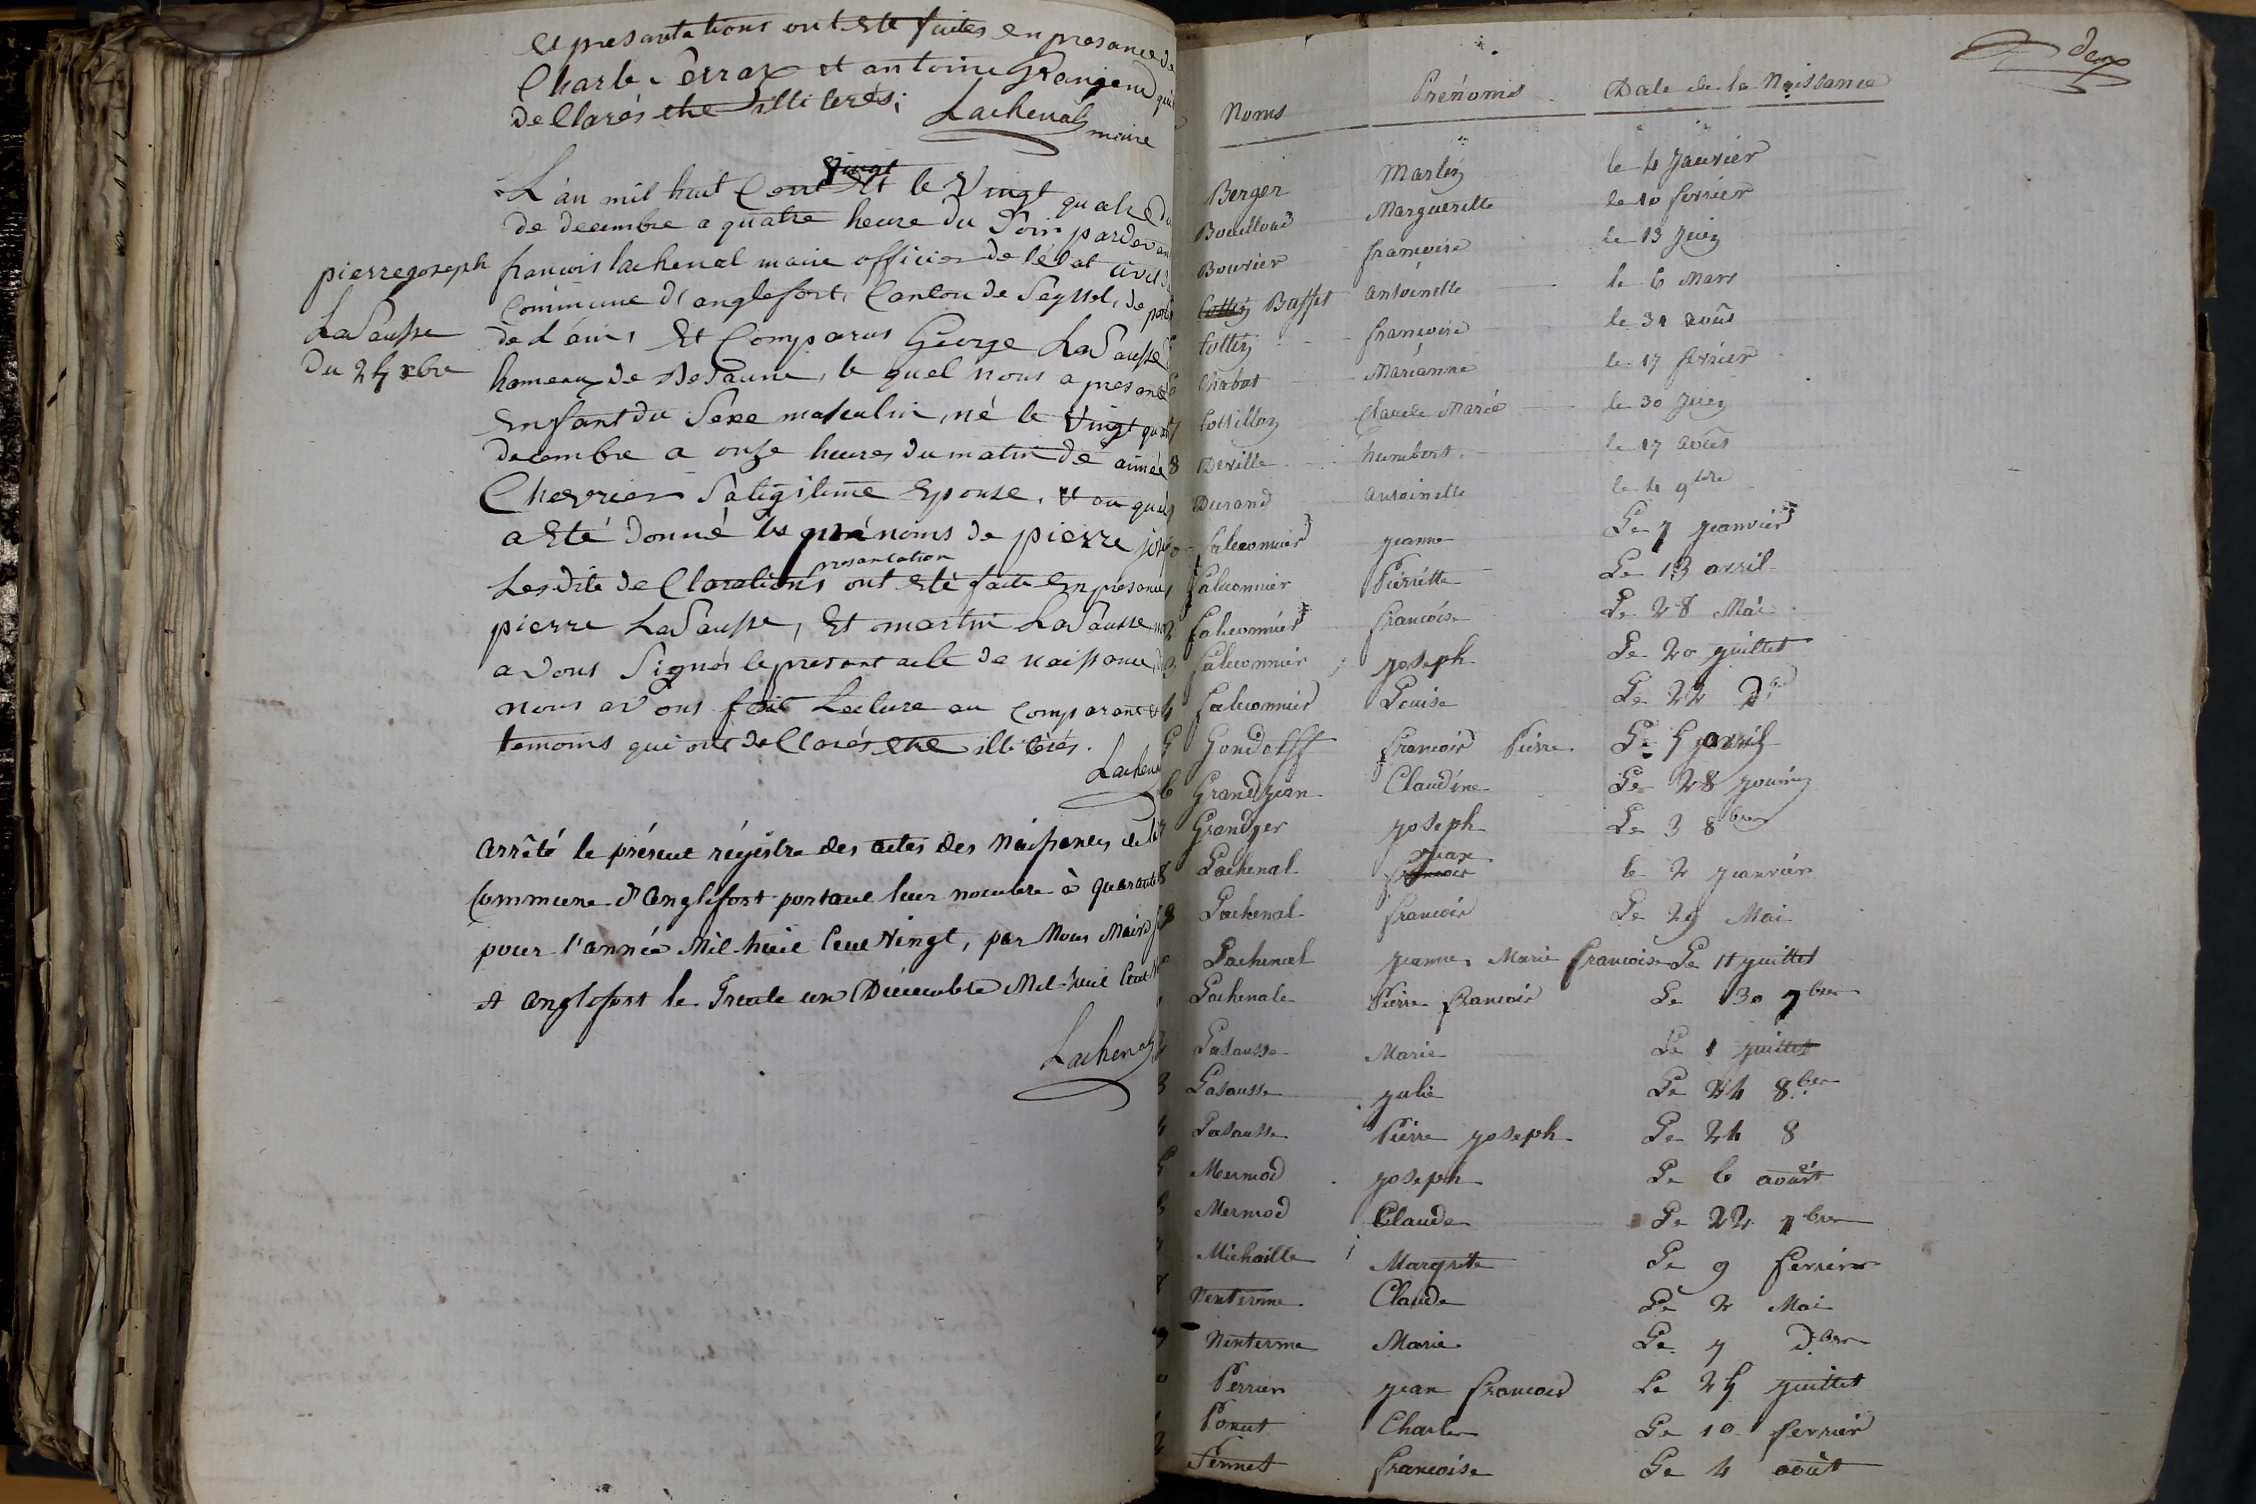 Et presantations ont Eté faites en presance de
Charle Serraz et antoine Grangend
de Clarés etre illiterés; Lachenal maire
L'an mil huit Cent vingt Et le Vingt quatre du
de decembre a quatre heure du Soir pardevan
pierre joseph
LaSausse
du 24 xbre
francois lachenal maire officier de l'état civil de
Commune d'anglefort, Canton de Seyssel, de
de l'ain, Et Comparus George LaSausse
hameau de , le quel nous a presanté
Enfant du Sexe masculin, né le Vingt quat
decembre a onze heures du matin de aimée
Chevrier Sa legitime Epouse, Et au quel
a Eté donné les prénoms de pierre jos
Les dite de Clarations presantation ont Eté faite En presance
pierre LaSausse, Et martin LaSausse
avons Signés le presant acte de naissance,
nous avons fait Lecture au Comparant Et
temoins qui ont de Clarés etre illiterés.
Lachena
arrêté le présent régistre des actes des Naissances de la
Commune d'anglefort portant leur nombre à quarante
pour l'année Mil huit Cent Vingt, par Nous Maire
A anglefort le Trente un Décembre Mil huit Cent
Lachenal
deux
Noms Prénoms Date de la Naissance
Berger Martin le 4 Janvier
Bouilloud Margueritte le 10 fevrier
Bouvier francoise le 13 Juin
Cottin Buffet antoinette le 6 Mars
Cottin francoise le 31 août
Chabot Marianne le 17 fevrier
7 Cottillon Claude Marie le 30 Juin
8 Deville humbert le 17 août
Durand antoinette le 4 9bre
falconnier jeanne Le 7 janvier
falconnier Pierrette Le 13 avril
2 falconnier francoise Le 28 Mai
3 falconnier joseph Le 20 juillet
4 falconnier Louise Le 22 d.
5 Gondolff francois Pierre Le 5 avril
6 Grandjean Claudine Le 28 jouin
7 Grandger joseph Le 3 8bre
8 Lachenal francois jean le 2 janvier
9 Lachenal francois Le 29 Mai
Lachenal jeanne Marie francoise Le 11 juillet
Lachenale Pierre francois Le 30 7bre
2 Lasausse Marie Le 1 juillet
3 Lasausse julie Le 24 8bre
4 Lasausse Pierre joseph Le 24 8
5 Mermod joseph Le 6 août
6 Mermod Claude Le 22 7bre
7 Michaille Margrite Le 9 fevrier
8 Nenterme Claude Le 2 Mai
9 Nenterme Marie Le 7 d.bre
0 Perrier jean francois Le 25 juillet
1 Ponut Charle Le 10 fevrier
2 Fernet francoise Le 4 août